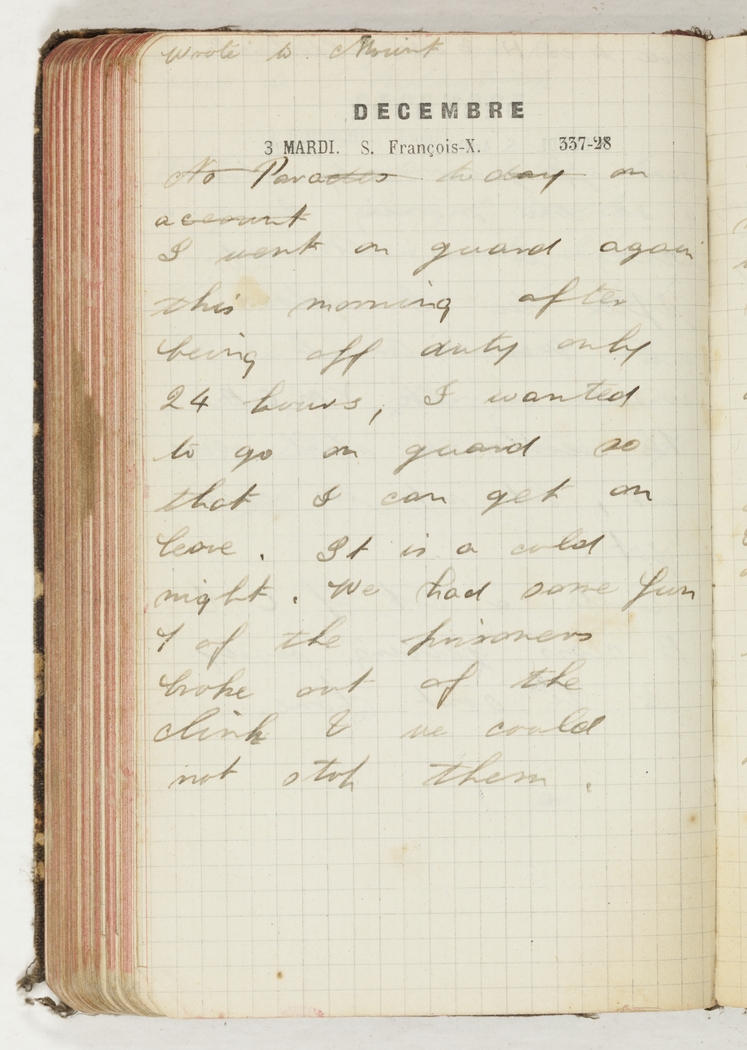 wrote to Mount
DECEMBRE
3 MARDI. S. François-X. 337-28
No Parades to day on
account
I went on guard again
this morning after
being off duty only
24 hours, I wanted
to go on guard so
that I can get on
leave. It is a cold
night. We had some fun
of the prisoners
broke out of the
clink & we could
not stop them.